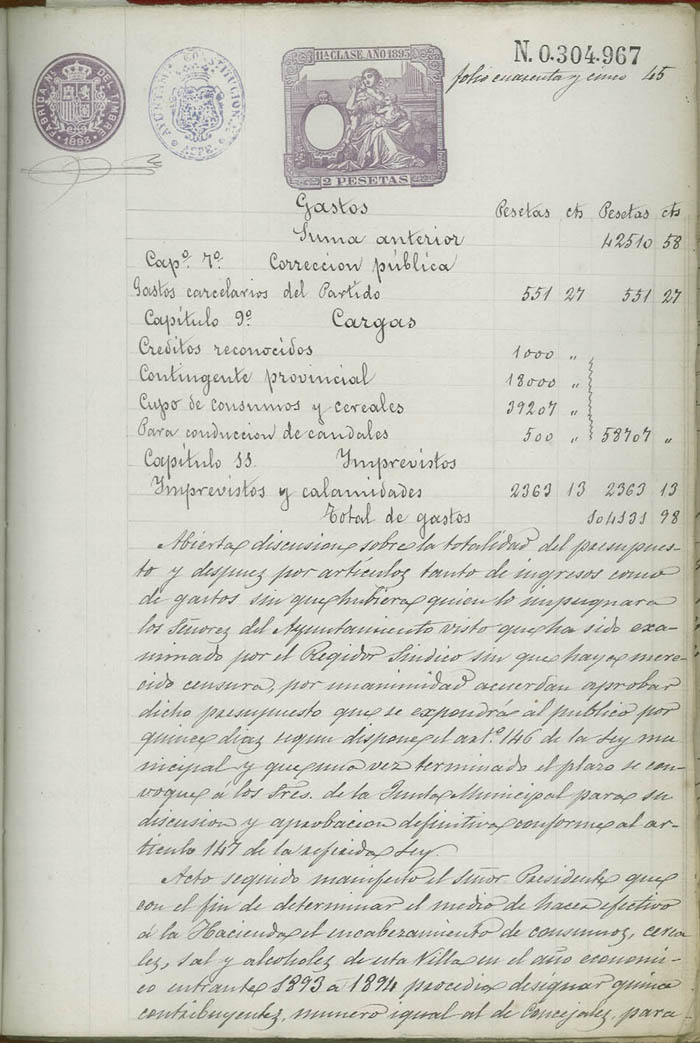 11ª CLASE AÑO 1893
N. 0.304.967
folio cuarenta y cinco 45
FABRICA NL. DEL TIMBRE
1893
AYUNTAMTO CONSTITUCIONAL
ASPE
2 PESETAS
Gastos Pesetas cts Pesetas cts
Suma anterior 42510 58
Capº. 7º Correccion pública
Gastos carcelarios del Partido 551 27 551 27
Capítulo 9º Cargas
Creditos reconocidos 1000 "
Contingente provincial 18000 "
Cupo de consumos y cereales 39207 "
Para conduccion de caudales 500 " 58707 "
Capítulo 11. Imprevistos
Imprevistos y calamidades 2363 13 2363 13
Total de gastos 104131 98
Abierta discusion sobre la totalidad del presupues-
to y despues por artículos tanto de ingresos como
de gastos sin que hubiera quien lo impugnara
los Señores del Ayuntamiento visto que ha sido exa-
minado por el Regidor Síndico sin que haya mere-
cido censura, por unanimidad acuerdan aprobar
dicho presupuesto que se expondrá al público por
quince dias segun dispone el artº. 146 de la Ley mu
nicipal y que una vez terminado el plazo se con-
voque á los Sres. de la Junta Municipal para su
discusion y aprobacion definitiva conforme al ar-
tículo 147 de la referida Ley.
Acto seguido manifestó el Señor Presidente que
con el fin de determinar el medio de hacer efectivo
á la Hacienda el encabezamiento de consumos, cerea
les, sal y alcoholes de esta Villa en el año económi-
co entrante 1893 á 1894 procedia designar quince
contribuyentes, numero igual al de Concejales, para